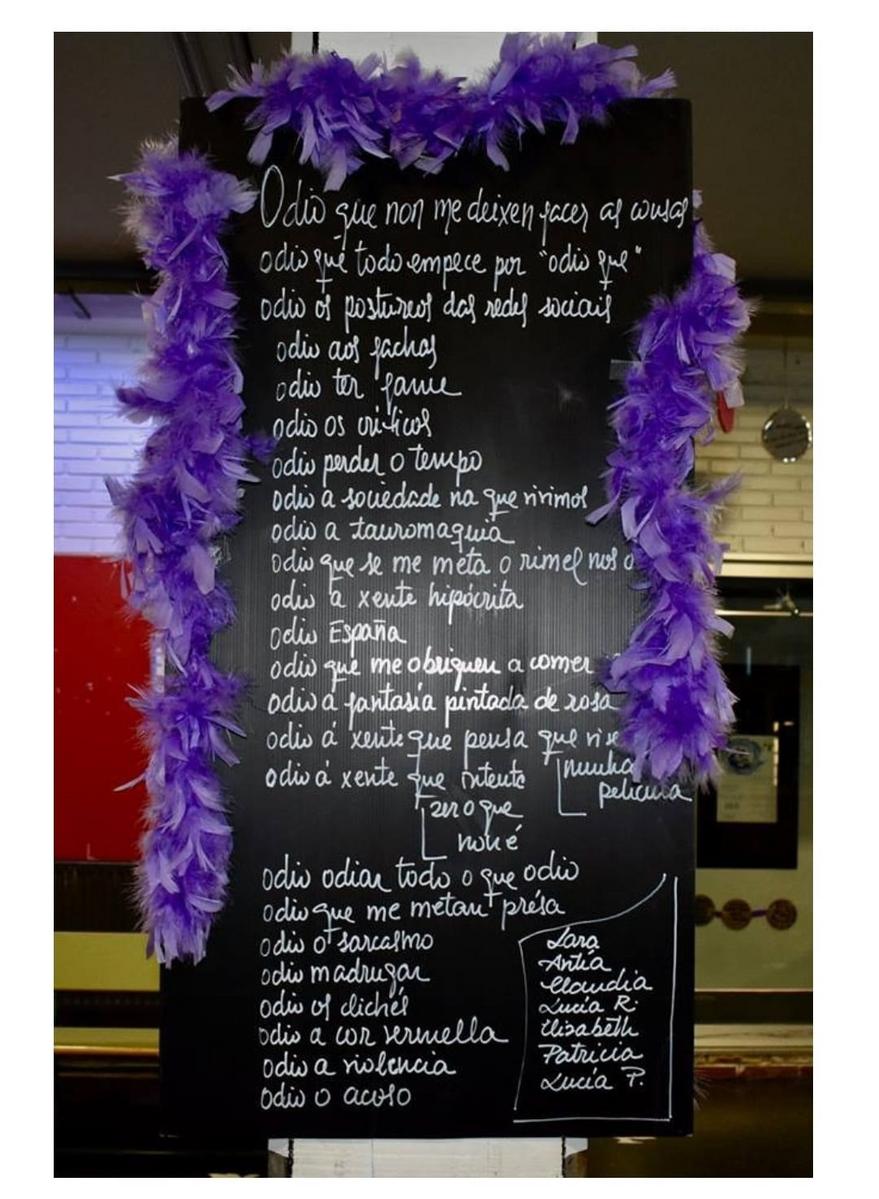 Odio que non me deixen facer as cousas
odio que todo empece por "odio que"
odio os postureos das redes sociais
odio aos fachas
odio ter fame
odio os críticos
odio perder o tempo
odio a sociedade na que vivimos
odio a tauromaquia
odio que se me meta o rimel nos o
odio a xente hipócrita
odio España
odio que me obriguen a comer
odio a fantasía pintada de rosa
odio á xente que pensa que vive
nunha
película
odio á xente que intente
ser o que
non é
odio odiar todo o que odio
odio que me metan présa
odio o sarcasmo
odio madrugar
odio os clichés
odio a cor vermella
odio a violencia
odio o acoso
Lara
Antía
Claudia
Lucía R.
Elisabeth
Patricia
Lucía P.